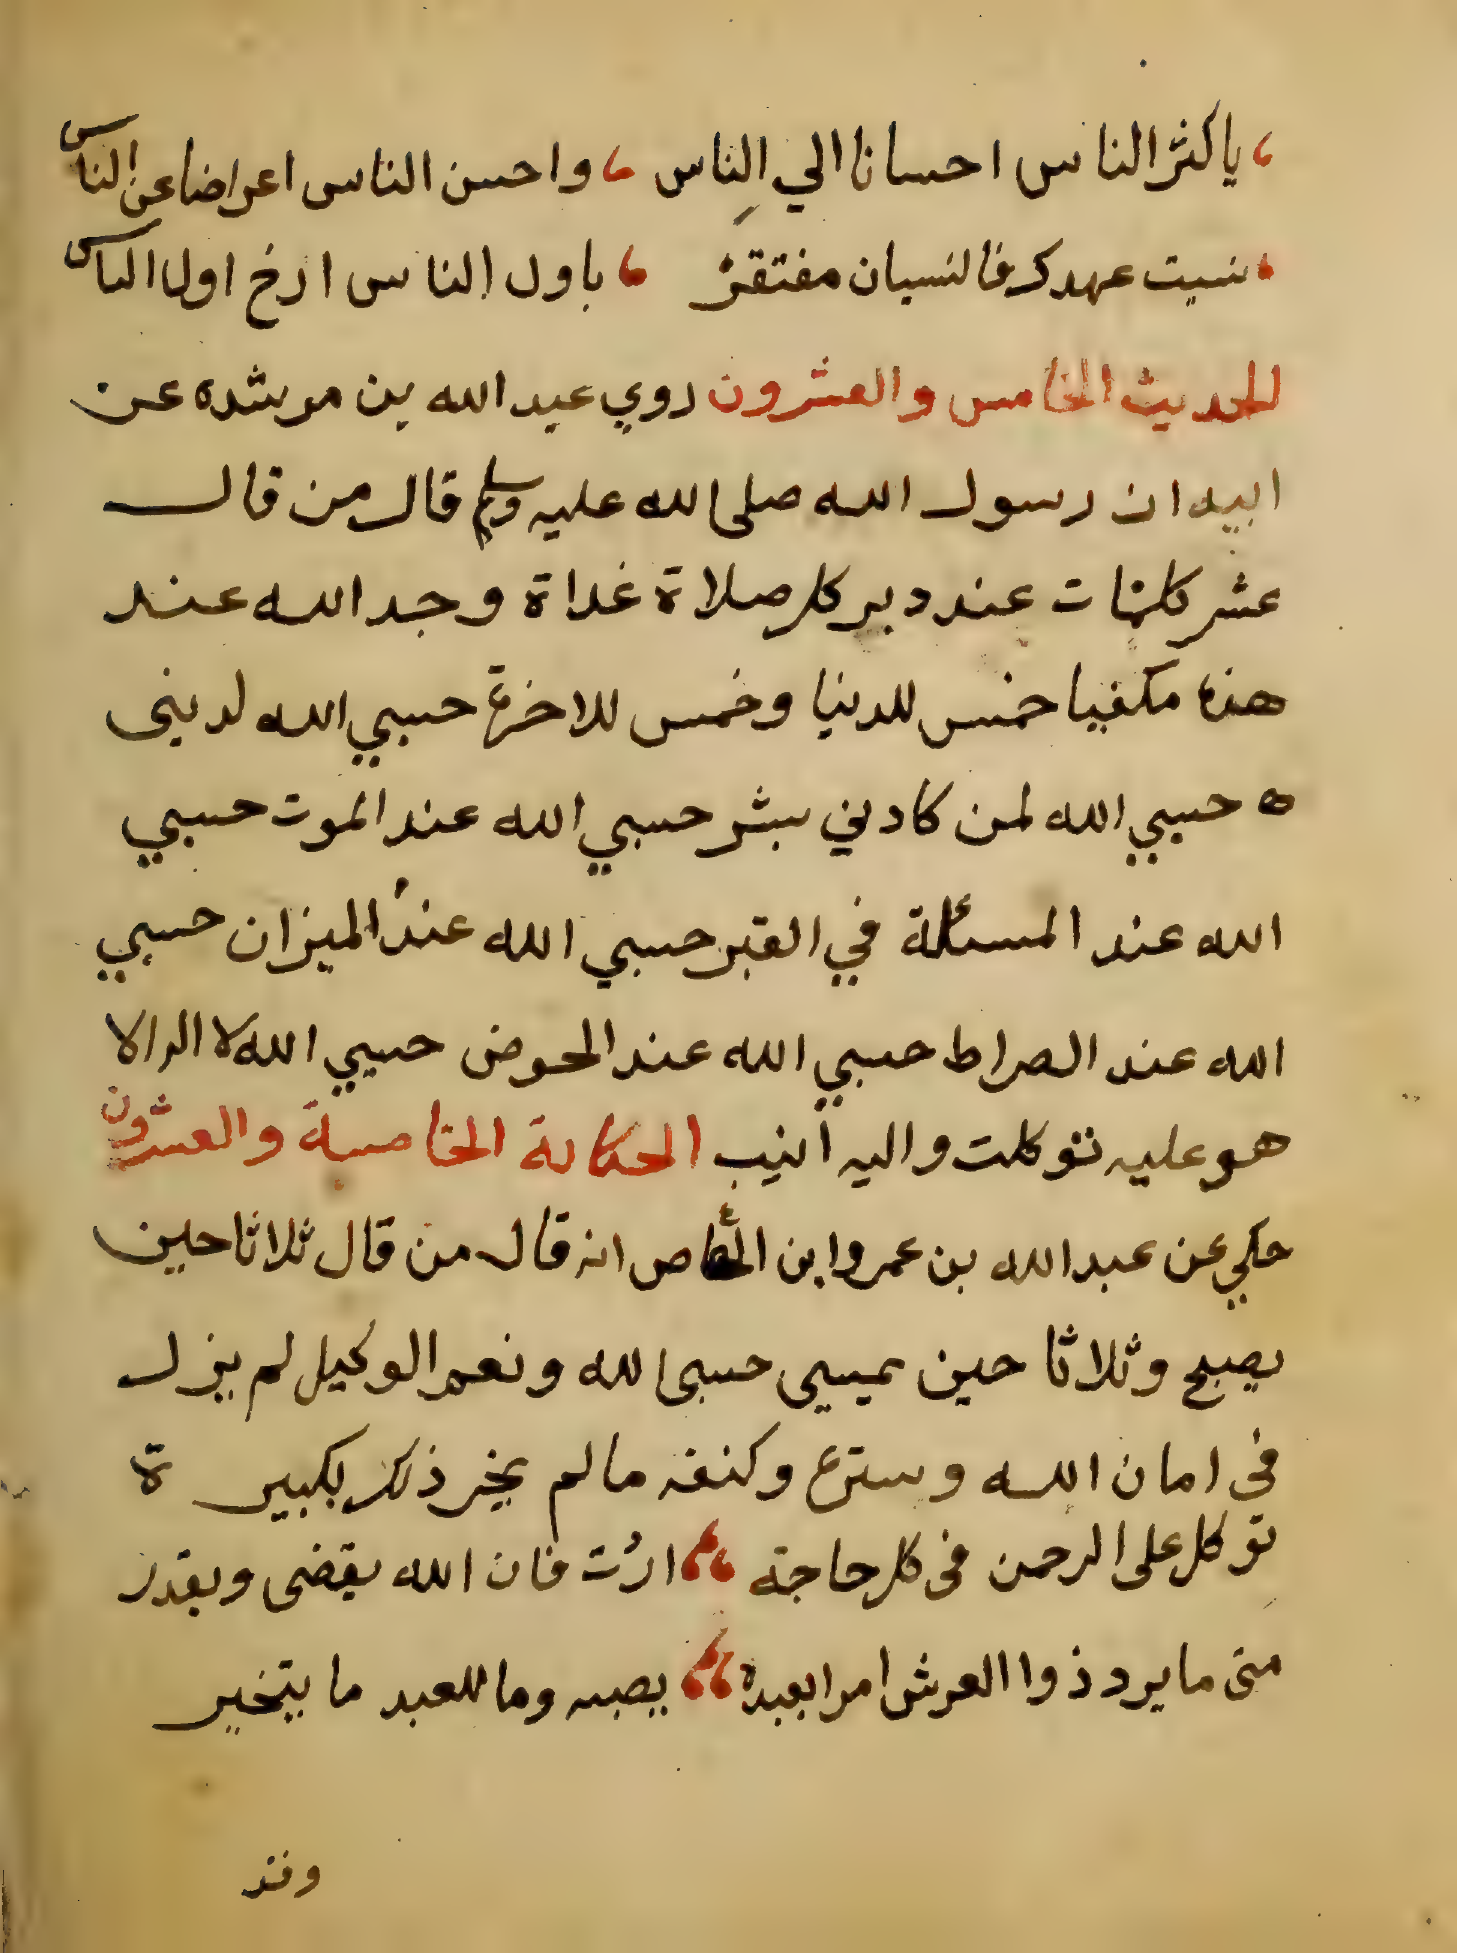 ياكثر الناس احسانا الي الناس واحسن الناس اعراضا عن الناس
نسيت عهدك فالنسيان مفتقر باول الناس ارخ اول الناس
الحديث الخامس والعشرون روي عبد الله بن مرىثده عن
ابيه ان رسول الله صلى الله عليه وسلم قال من قال
عشر كلمات عند دبر كل صلاة غداة وجد الله عند
هذه مكفيا خمس للدنيا وخمس للاخرة حسبي الله لديني
ه حسبي الله لمن كادني بشر حسبي الله عند الموت حسبي
الله عند المسئلة في القبر حسبي الله عند الميزان حسبي
الله عند الصراط حسبي الله عند الحوض حسبي الله لا اله الا
هو عليه توكلت واليه انيب الحكاية الخامسة والعشرون
حكي عن عبد الله بن عمرو ابن العاص انه قال من قال ثلاثا حين
يصبح وثلاثا حين يمسي حسبى الله ونعم الوكيل لم يزل
في امان الله وستره وكنفه ما لم يخر ذلك بكبيرة
توكل على الرحمن في كل حاجة اردت فان الله يقضى ويقدر
متى ما يرد ذوا العرش امرا بعبده يصبه وما للعبد ما يتخير
وقد